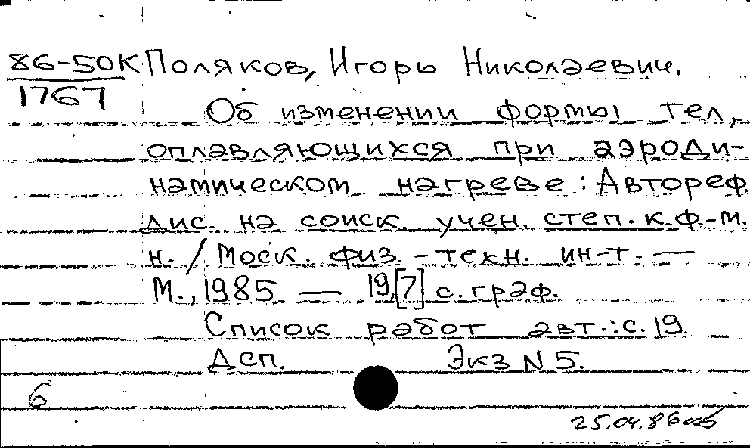 86-50К Поляков, Игорь Николаевич.
1767
Об изменении формы тел,
оплавляющихся при аэроди-
намическом нагреве: Автореф.
дис. на соиск. учен. степ. к.ф-м.
н. / Моск. физ.-техн. ин-т. —
М., 1985 — 19,[7] с. граф.
Список работ авт.: с. 19
Дсп. Экз N 5.
6
25.04.86